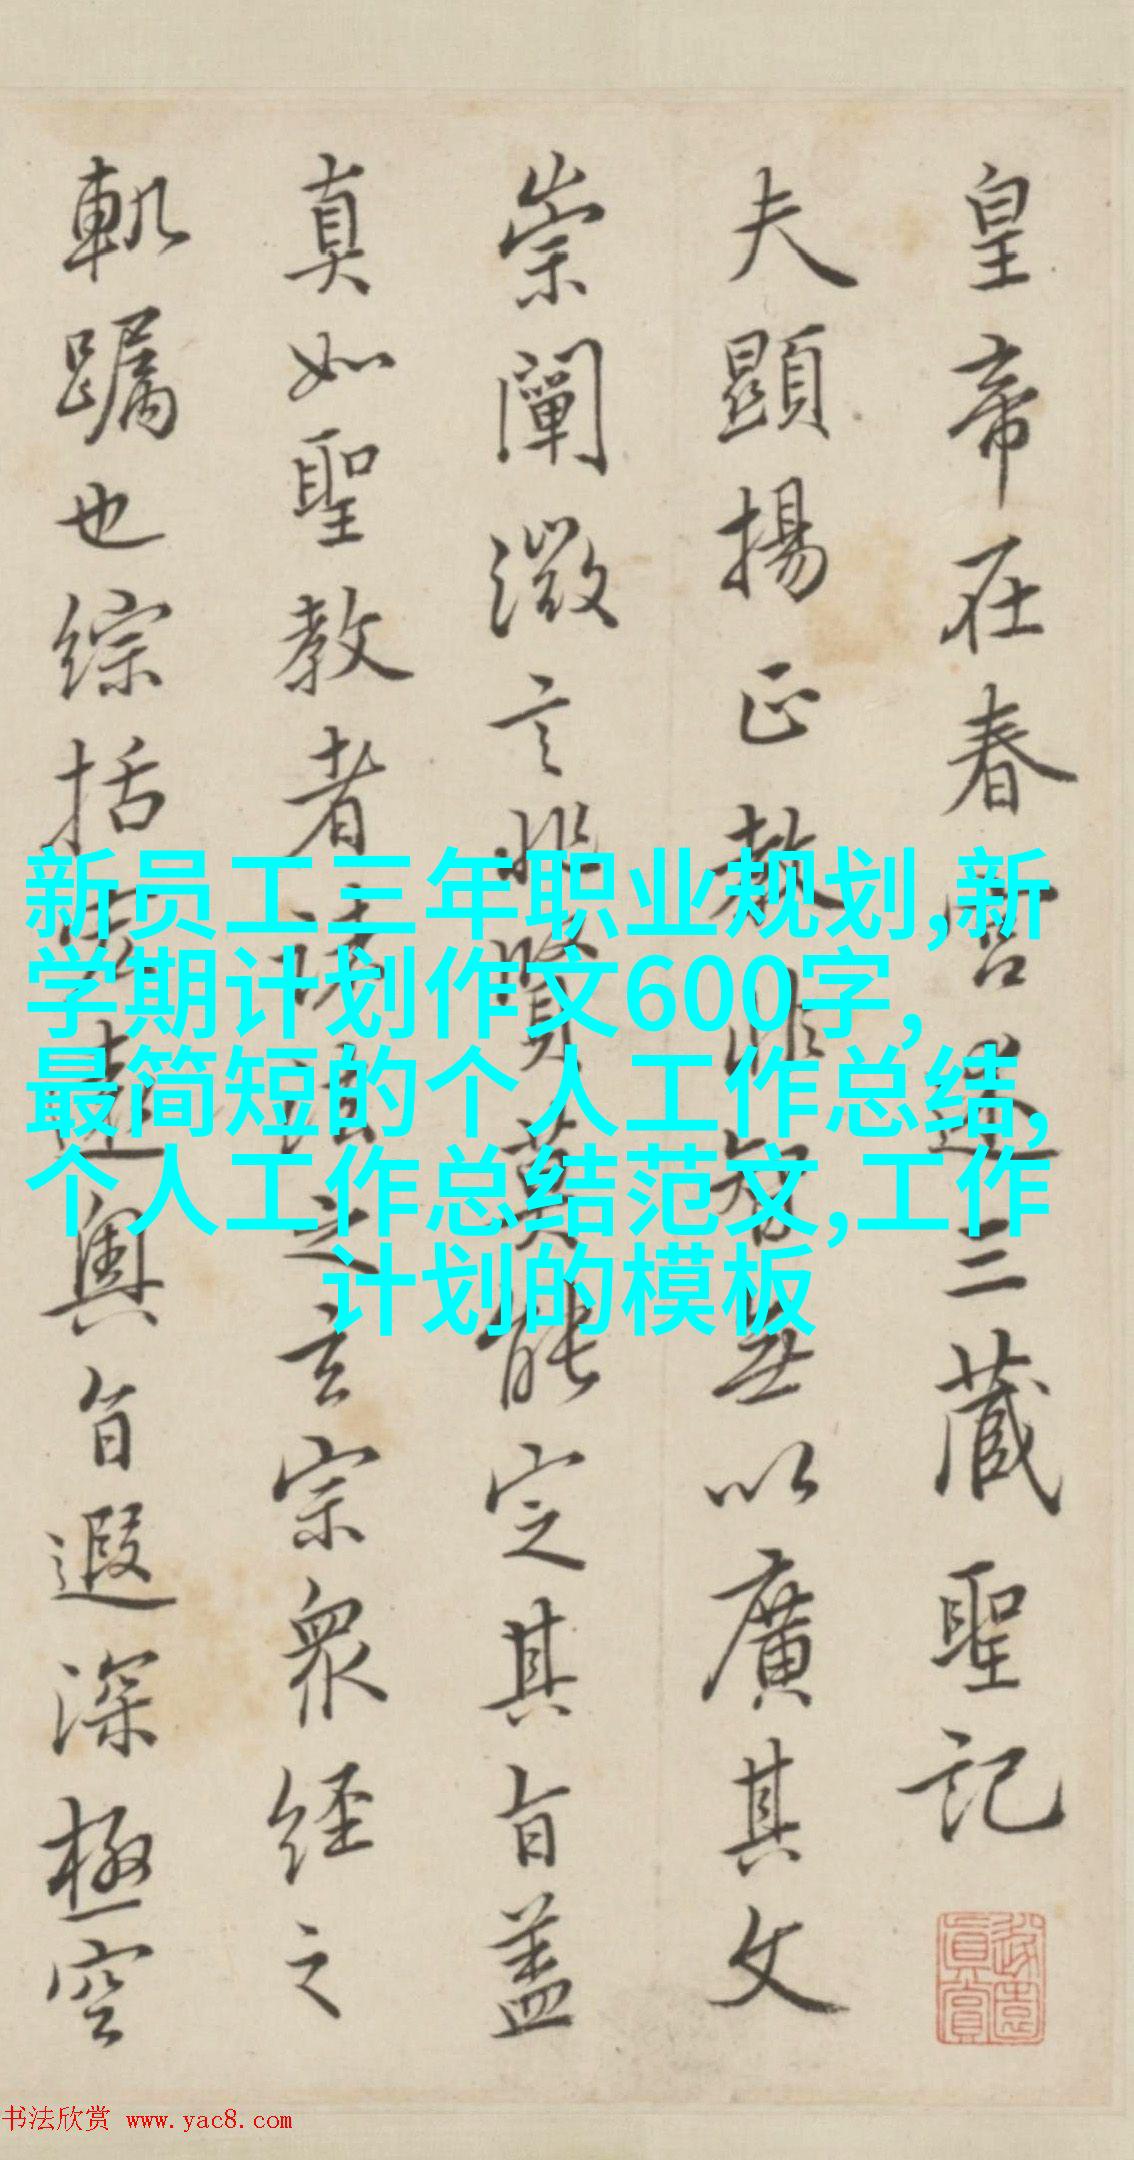 皇帝在春宮述三藏聖記
夫顯揚正教非智無以廣其文
崇闡微言非賢莫能定其旨蓋
真如聖教者諸法之玄宗眾經之
軌躅也綜括宏遠奧旨遐深極空
新员工三年职业规划,新
学期计划作文600字,
最简短的个人工作总结,
个人工作总结范文,工作
计划的模板
书法欣赏 www.yac8.com